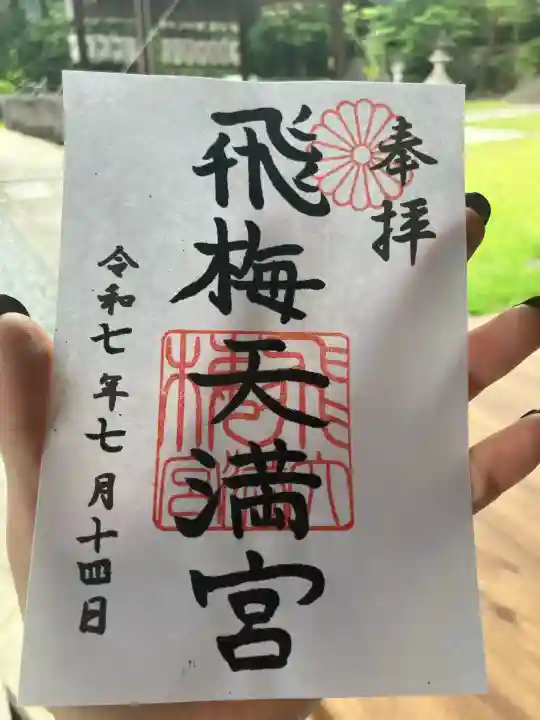 奉拝
飛梅天満宮
令和七年七月十四日